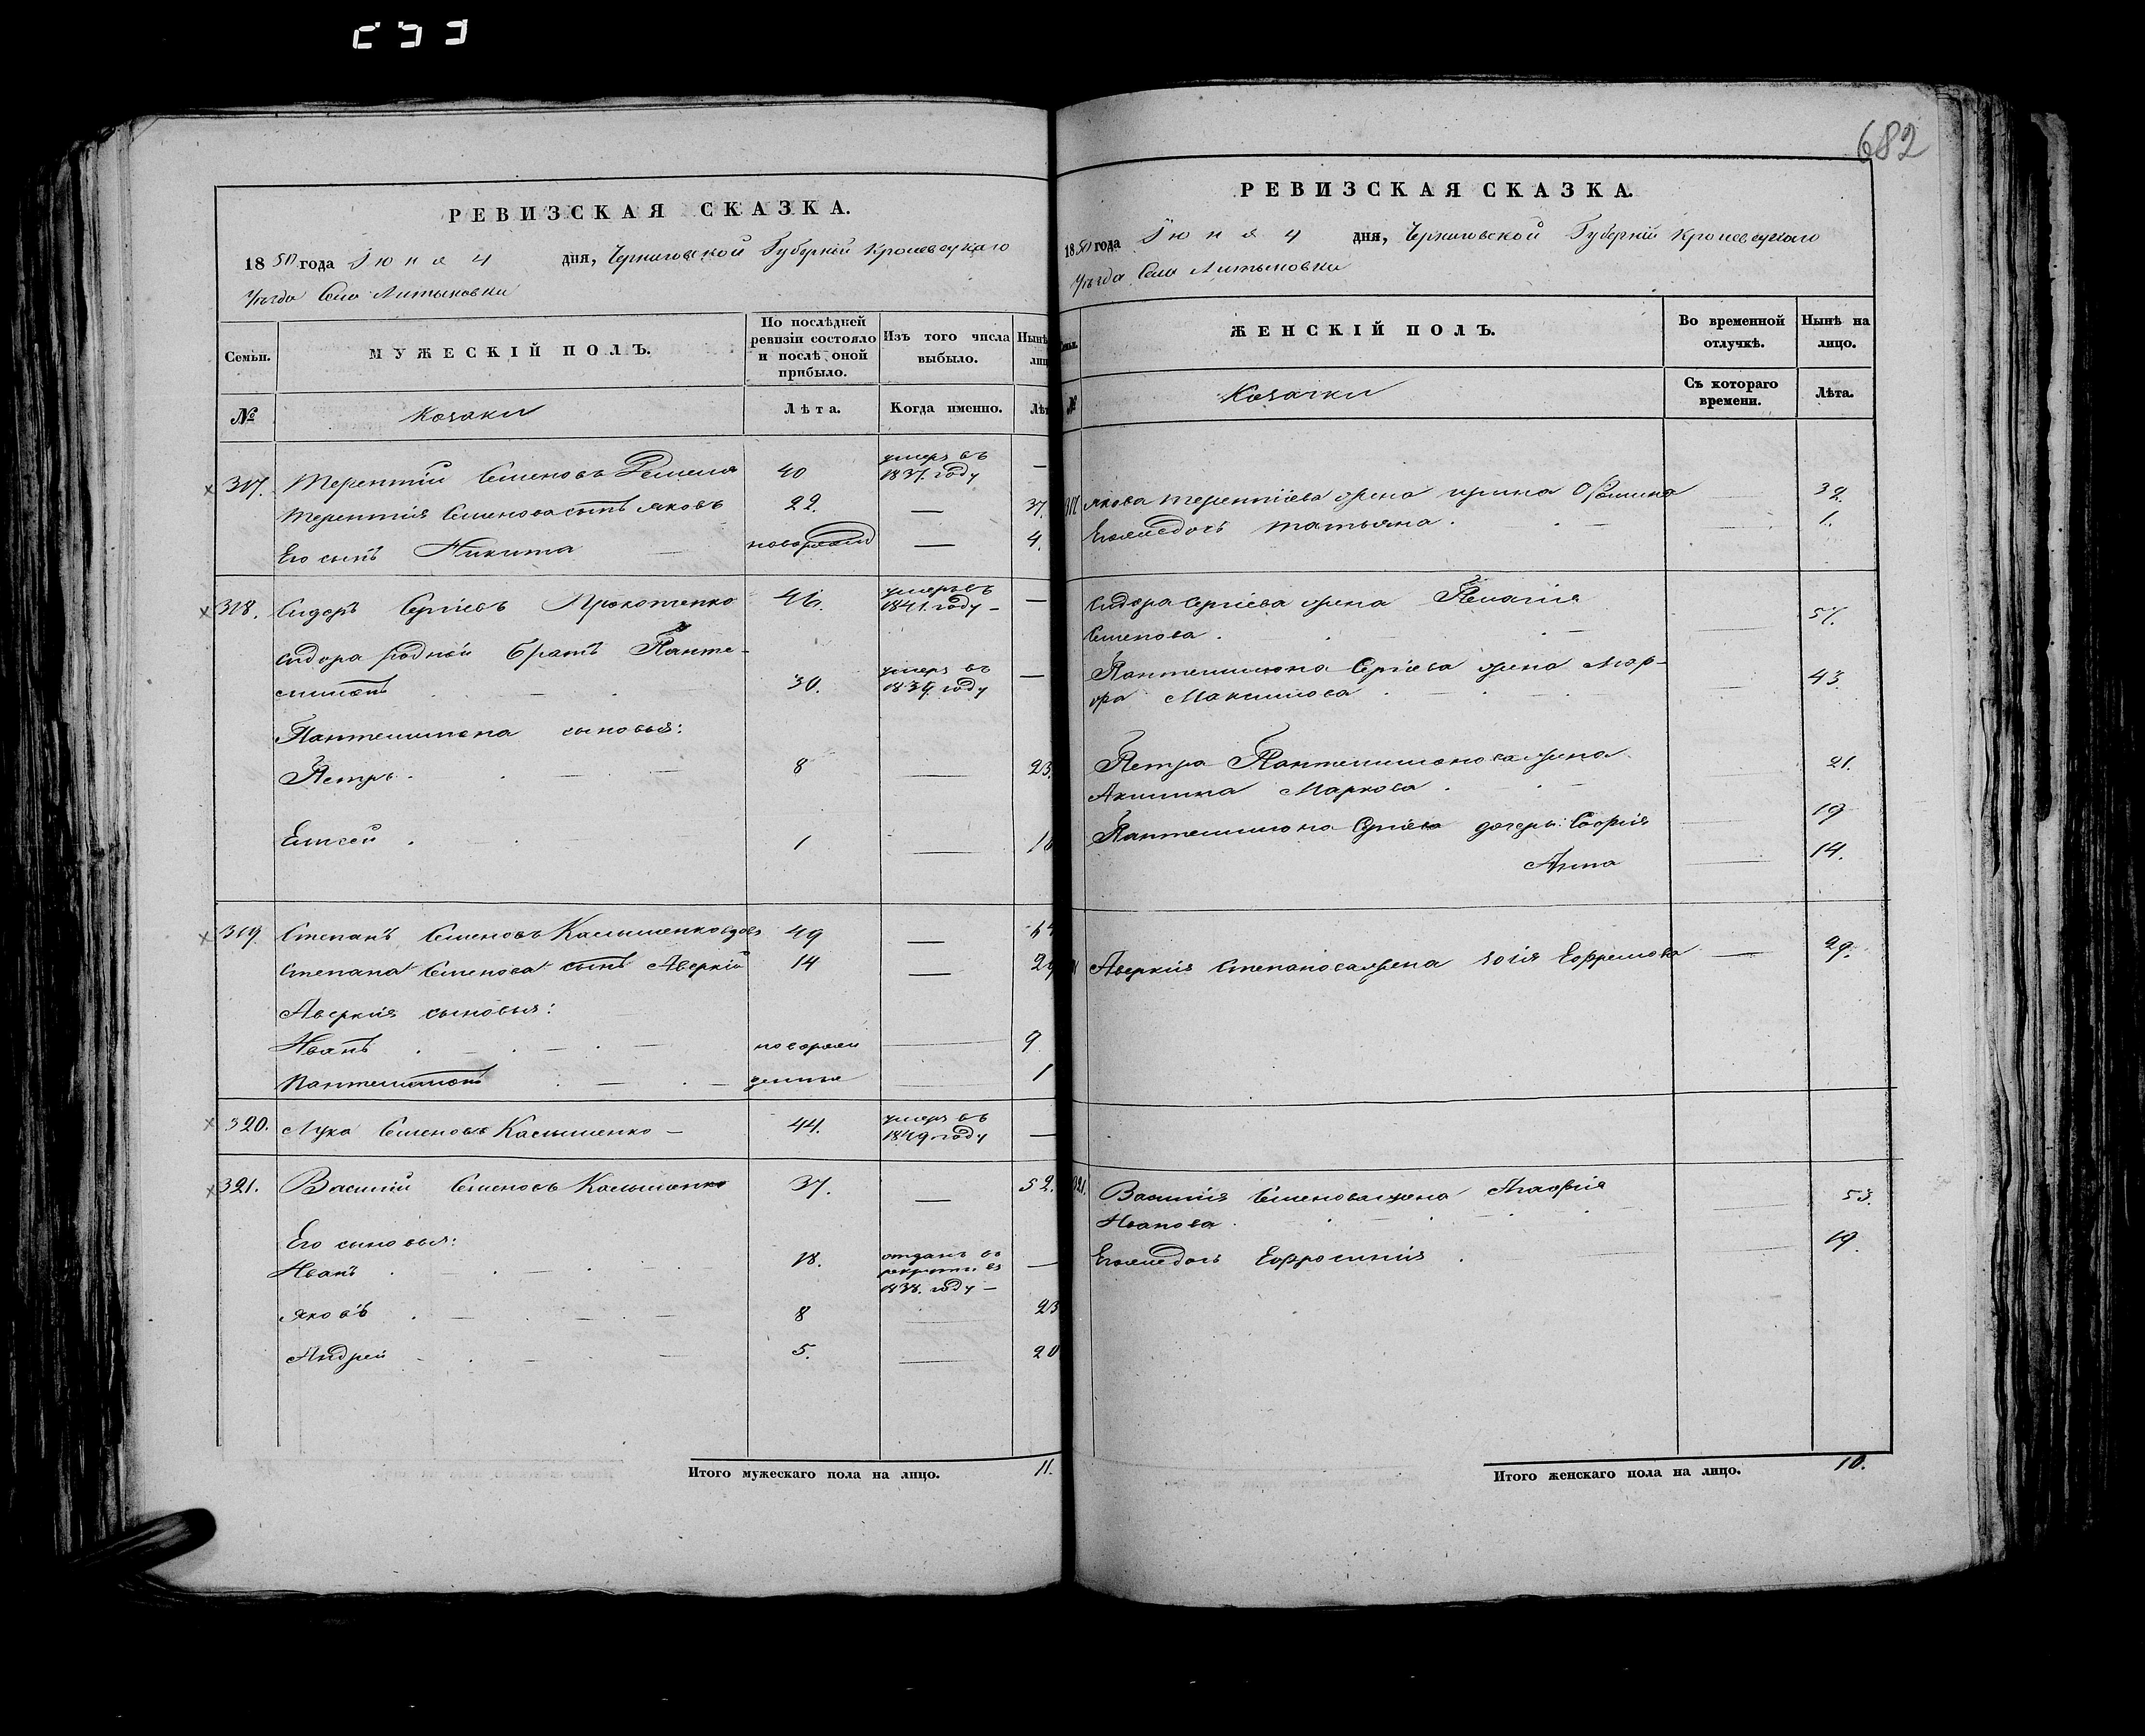 682
РЕВИЗСКАЯ СКАЗКА.
1850 года Іюня 4 дня, Черниговской Губерніи Кролевецкаго
уѣзда Села Литвиновки
Семьи. МУЖЕСКІЙ ПОЛЪ. По послѣдней ревизіи состояло и послѣ оной прибыло. Изъ того числа выбыло. Нынѣ
№ Козаки Лѣта. Когда именно. Лѣт
317. Терентій Семеновъ 40 умеръ въ 1837. году —
Терентія Семенова сынъ Яковъ 22. — 37.
Его сынъ Никита — новорожд — 4.
318. Сидоръ Сергіевъ Прокопенко 46. умеръ въ 1841. году — —
Сидора родной братъ Панте-
лимонъ 30. умеръ въ году —
Пантелимона сыновья:
Петръ 8 — 23.
Елисей 1 — 16
319. Степанъ Семеновъ вдовъ 49 — 64
Степана Семенова сынъ Аверкій 14 — 29
Аверкія сыновья:
Иванъ новорож — 9
Пантелимонъ денные — 1
320. Лука Семеновъ — 44. умеръ въ 1849 году —
321. Василій Семеновъ 37. — 52.
Его сыновья:
Иванъ 18. отданъ въ рекруты въ 1838. году — —
Яковъ 8 — 23
Андрей 5. — 20
Итого мужескаго пола на лицо. 11.
РЕВИЗСКАЯ СКАЗКА.
1850 года Іюня 4 дня, Черниговской Губерніи Кролевецкаго
уѣзда Села Литвиновки
Семьи. ЖЕНСКІЙ ПОЛЪ. Во временной отлучкѣ. Нынѣ на лицо.
№ Козачки Съ котораго времени. Лѣта.
317 Якова Терентіева жена Ирина — 32.
Его дочь Татьяна — 1.
Сидора Сергіева жена Пелагія
Семенова — 57.
Пантелимона Сергіева жена Мар-
фа Максимова — 43.
Петра Пантелимонова жена
Акилина Маркова — 21.
Пантелимона Сергіева дочери: Софія — 19
Анна — 14.
Аверкія Степанова жена Ефремова — 29.
321. Василія Семенова жена Агафія
Иванова — 53.
Его дочь Ефросинія — 19.
Итого женскаго пола на лицо. 10.